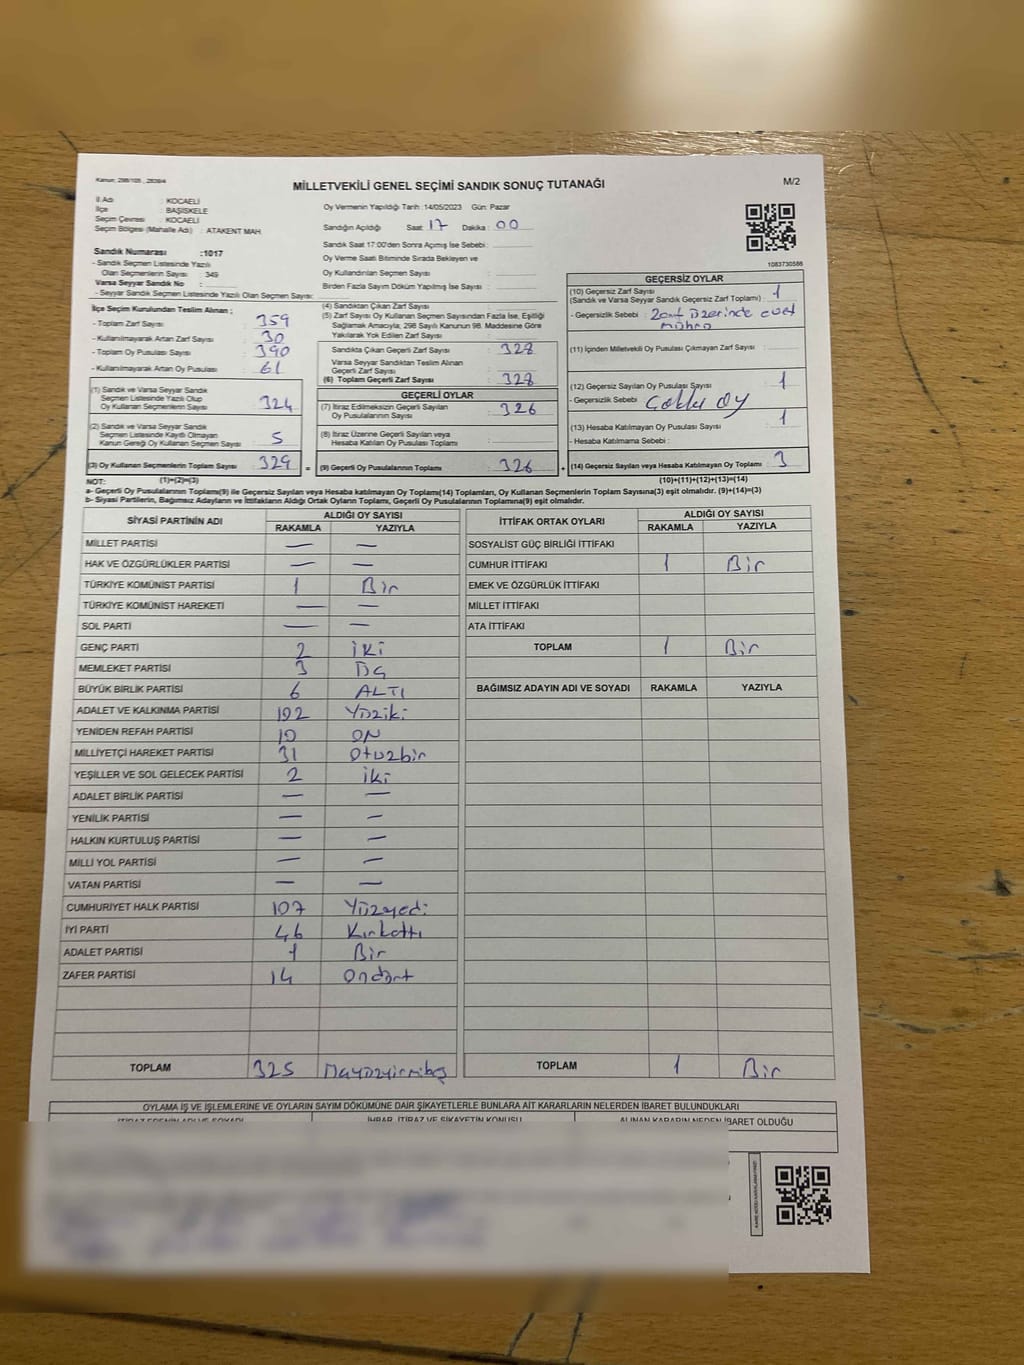 Kanun; 298/105 , 2839/4
MİLLETVEKİLİ GENEL SEÇİMİ SANDIK SONUÇ TUTANAĞI
M/2
İl Adı : KOCAELİ
İlçe : BAŞİSKELE
Seçim Çevresi : KOCAELİ
Seçim Bölgesi (Mahalle Adı) : ATAKENT MAH.
Oy Vermenin Yapıldığı Tarih :14/05/2023 Gün: Pazar
Sandığın Açıldığı Saat: 17 Dakika : 00
Sandık Saat 17:00'den Sonra Açılmış İse Sebebi :
Oy Verme Saati Bitiminde Sırada Bekleyen ve
Oy Kullandırılan Seçmen Sayısı :
Birden Fazla Sayım Döküm Yapılmış İse Sayısı :
1083730586
Sandık Numarası :1017
- Sandık Seçmen Listesinde Yazılı
Olan Seçmenlerin Sayısı : 349
Varsa Seyyar Sandık No :
- Seyyar Sandık Seçmen Listesinde Yazılı Olan Seçmen Sayısı:
İlçe Seçim Kurulundan Teslim Alınan ;
- Toplam Zarf Sayısı : 359
- Kullanılmayarak Artan Zarf Sayısı : 30
- Toplam Oy Pusulası Sayısı : 390
- Kullanılmayarak Artan Oy Pusulası : 61
(1) Sandık ve Varsa Seyyar Sandık
Seçmen Listesinde Yazılı Olup
Oy Kullanan Seçmenlerin Sayısı : 324
(2) Sandık ve Varsa Seyyar Sandık
Seçmen Listesinde Kayıtlı Olmayan
Kanun Gereği Oy Kullanan Seçmen Sayısı : 5
(3) Oy Kullanan Seçmenlerin Toplam Sayısı : 329 =
(4) Sandıktan Çıkan Zarf Sayısı :
(5) Zarf Sayısı Oy Kullanan Seçmen Sayısından Fazla İse, Eşitliği
Sağlamak Amacıyla; 298 Sayılı Kanunun 98. Maddesine Göre
Yakılarak Yok Edilen Zarf Sayısı :
Sandıkta Çıkan Geçerli Zarf Sayısı : 328
Varsa Seyyar Sandıktan Teslim Alınan
Geçerli Zarf Sayısı :
(6) Toplam Geçerli Zarf Sayısı : 328
GEÇERLİ OYLAR
(7) İtiraz Edilmeksizin Geçerli Sayılan
Oy Pusulalarının Sayısı : 326
(8) İtiraz Üzerine Geçerli Sayılan veya
Hesaba Katılan Oy Pusulası Toplamı :
(9) Geçerli Oy Pusulalarının Toplamı : 326 +
GEÇERSİZ OYLAR
(10) Geçersiz Zarf Sayısı
(Sandık ve Varsa Seyyar Sandık Geçersiz Zarf Toplamı) : 1
- Geçersizlik Sebebi : Zarf üzerinde evet
mührü
(11) İçinden Milletvekili Oy Pusulası Çıkmayan Zarf Sayısı :
(12) Geçersiz Sayılan Oy Pusulası Sayısı : 1
- Geçersizlik Sebebi : Çoklu oy
(13) Hesaba Katılmayan Oy Pusulası Sayısı : 1
- Hesaba Katılmama Sebebi :
(14) Geçersiz Sayılan veya Hesaba Katılmayan Oy Toplamı : 3
NOT: (1)+(2)=(3) (10)+(11)+(12)+(13)=(14)
a- Geçerli Oy Pusulalarının Toplamı(9) ile Geçersiz Sayılan veya Hesaba katılmayan Oy Toplamı(14) Toplamları, Oy Kullanan Seçmenlerin Toplam Sayısına(3) eşit olmalıdır. (9)+(14)=(3)
b- Siyasi Partilerin, Bağımsız Adayların ve İttifakların Aldığı Ortak Oyların Toplamı, Geçerli Oy Pusulalarının Toplamına(9) eşit olmalıdır.
SİYASİ PARTİNİN ADI ALDIĞI OY SAYISI
RAKAMLA YAZIYLA
MİLLET PARTİSİ — —
HAK VE ÖZGÜRLÜKLER PARTİSİ — —
TÜRKİYE KOMÜNİST PARTİSİ 1 Bir
TÜRKİYE KOMÜNİST HAREKETİ — —
SOL PARTİ — —
GENÇ PARTİ 2 İki
MEMLEKET PARTİSİ 3 Üç
BÜYÜK BİRLİK PARTİSİ 6 ALTI
ADALET VE KALKINMA PARTİSİ 102 Yüziki
YENİDEN REFAH PARTİSİ 10 ON
MİLLİYETÇİ HAREKET PARTİSİ 31 Otuzbir
YEŞİLLER VE SOL GELECEK PARTİSİ 2 İki
ADALET BİRLİK PARTİSİ — —
YENİLİK PARTİSİ — —
HALKIN KURTULUŞ PARTİSİ — —
MİLLİ YOL PARTİSİ — —
VATAN PARTİSİ — —
CUMHURİYET HALK PARTİSİ 107 Yüzyedi
İYİ PARTİ 46 Kırkaltı
ADALET PARTİSİ 1 Bir
ZAFER PARTİSİ 14 Ondört
TOPLAM 325 Üçyüzyirmibeş
İTTİFAK ORTAK OYLARI ALDIĞI OY SAYISI
RAKAMLA YAZIYLA
SOSYALİST GÜÇ BİRLİĞİ İTTİFAKI
CUMHUR İTTİFAKI 1 Bir
EMEK VE ÖZGÜRLÜK İTTİFAKI
MİLLET İTTİFAKI
ATA İTTİFAKI
TOPLAM 1 Bir
BAĞIMSIZ ADAYIN ADI VE SOYADI RAKAMLA YAZIYLA
TOPLAM 1 Bir
OYLAMA İŞ VE İŞLEMLERİNE VE OYLARIN SAYIM DÖKÜMÜNE DAİR ŞİKAYETLERLE BUNLARA AİT KARARLARIN NELERDEN İBARET BULUNDUKLARI
İTİRAZ EDENİN ADI VE SOYADI İHBAR, İTİRAZ VE ŞİKAYETİN KONUSU ALINAN KARARIN NEDEN İBARET OLDUĞU